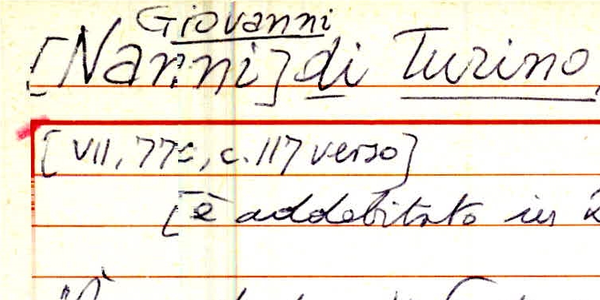 Giovanni
[Nanni] di Turino
[VII, 77c, c. 117 verso]
[è addebitato in